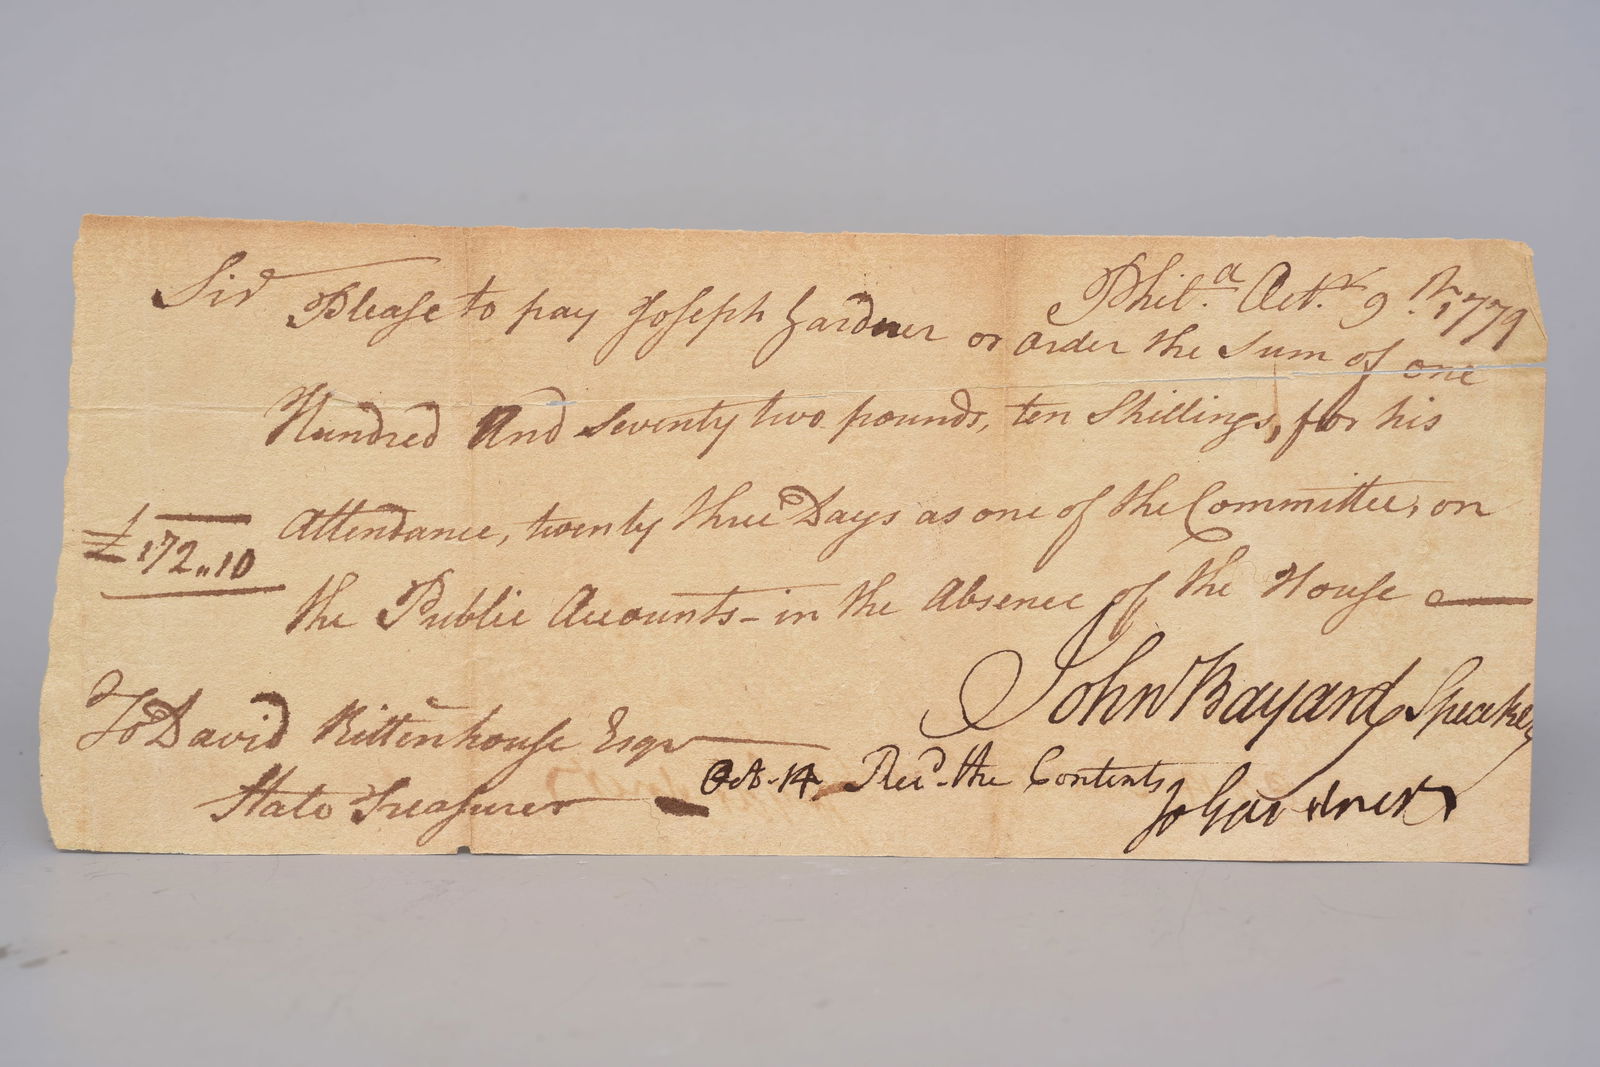 Phila. Octr. 9th. 1779
Sir
Please to pay Joseph Gardner or order the Sum of one
Hundred And Seventy two pounds, ten Shillings, for his
Attendance, twenty three Days as one of the Committee, on
£172,,10
the Public Accounts - in the Absence of the House
John Bayard Speaker
To David Rittenhouse Esqr
State Treasurer
Oct. 14, Recd. the Contents
Jo Gardner